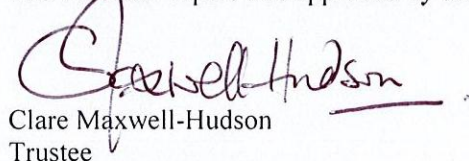 Maxwell-Hudson
Clare Maxwell-Hudson
Trustee